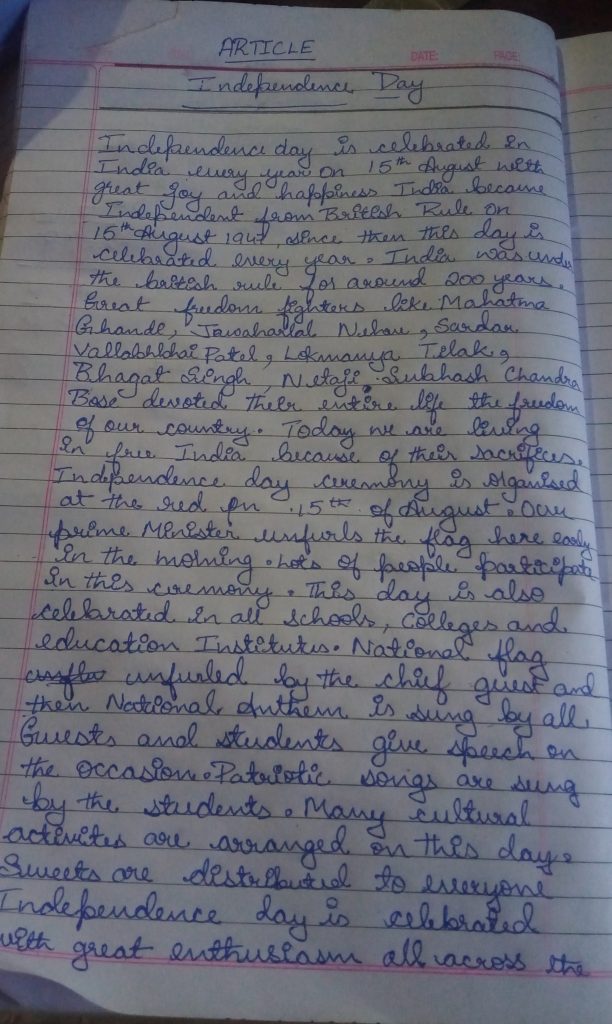 ARTICLE
DATE: PAGE:
Independence Day
Independence day is celebrated in
India every year on 15th August with
great joy and happiness India became
Independent from British Rule on
15th August 1947, since then this day is
celebrated every year. India was under
the british rule for around 200 years.
Great freedom fighters like Mahatma
Ghandi, Jawaharlal Nehru, Sardar
Vallabhbhai Patel, Lokmanya Telak,
Bhagat Singh, Netaji Subhash Chandra
Bose devoted their entire life the freedom
of our country. Today we are living
in free India because of their sacrifices.
Independence day ceremony is organised
at the red on 15th of August. Our
prime Minister unfurls the flag here early
in the morning. Lots of people participate
in this ceremony. This day is also
celebrated in all schools, Colleges and
education Institutes. National flag
unfurled by the chief guest and
then National Anthem is sung by all.
Guests and students give speech on
the occasion. Patriotic songs are sung
by the students. Many cultural
activites are arranged on this day.
Sweets are distributed to everyone
Independence day is celebrated
with great enthusiasm all across the